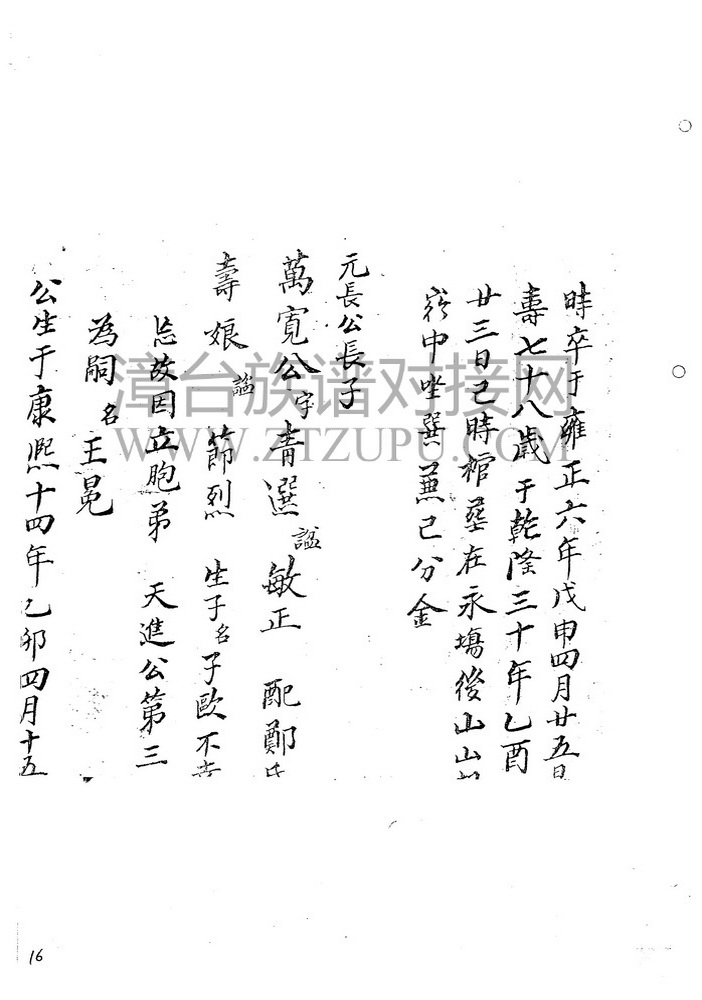 時卒于雍正六年戊申四月廿五日
壽七十八歲于乾隆三十年乙酉
廿三日己時棺塟在永塲後山山
中坐巽兼己分金
元長公長子
萬寬公字青選諡敏正 配鄭氏
壽娘諡節烈 生子名子歐不幸
故因立胞弟 天進公第三
為嗣名王晃
公生于康熙十四年乙卯四月十五
漳台族谱对接网
WWW.ZTZUPU.COM
16